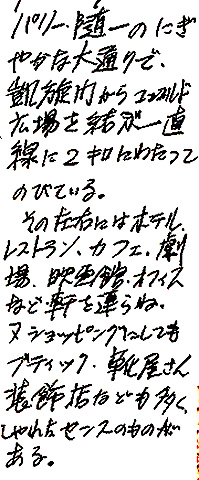 パリ一随一のにぎ
やかな大通りで、
凱旋門からコンコルド
広場を結ぶ一直
線に2キロにわたって
のびている。
その左右にはホテル、
レストラン、カフェ、劇
場、映画館、オフィス
など軒を連らね、
又ショッピングにしても
ブティック、靴屋さん
装飾店なども多く、
しゃれたセンスのものが
ある。